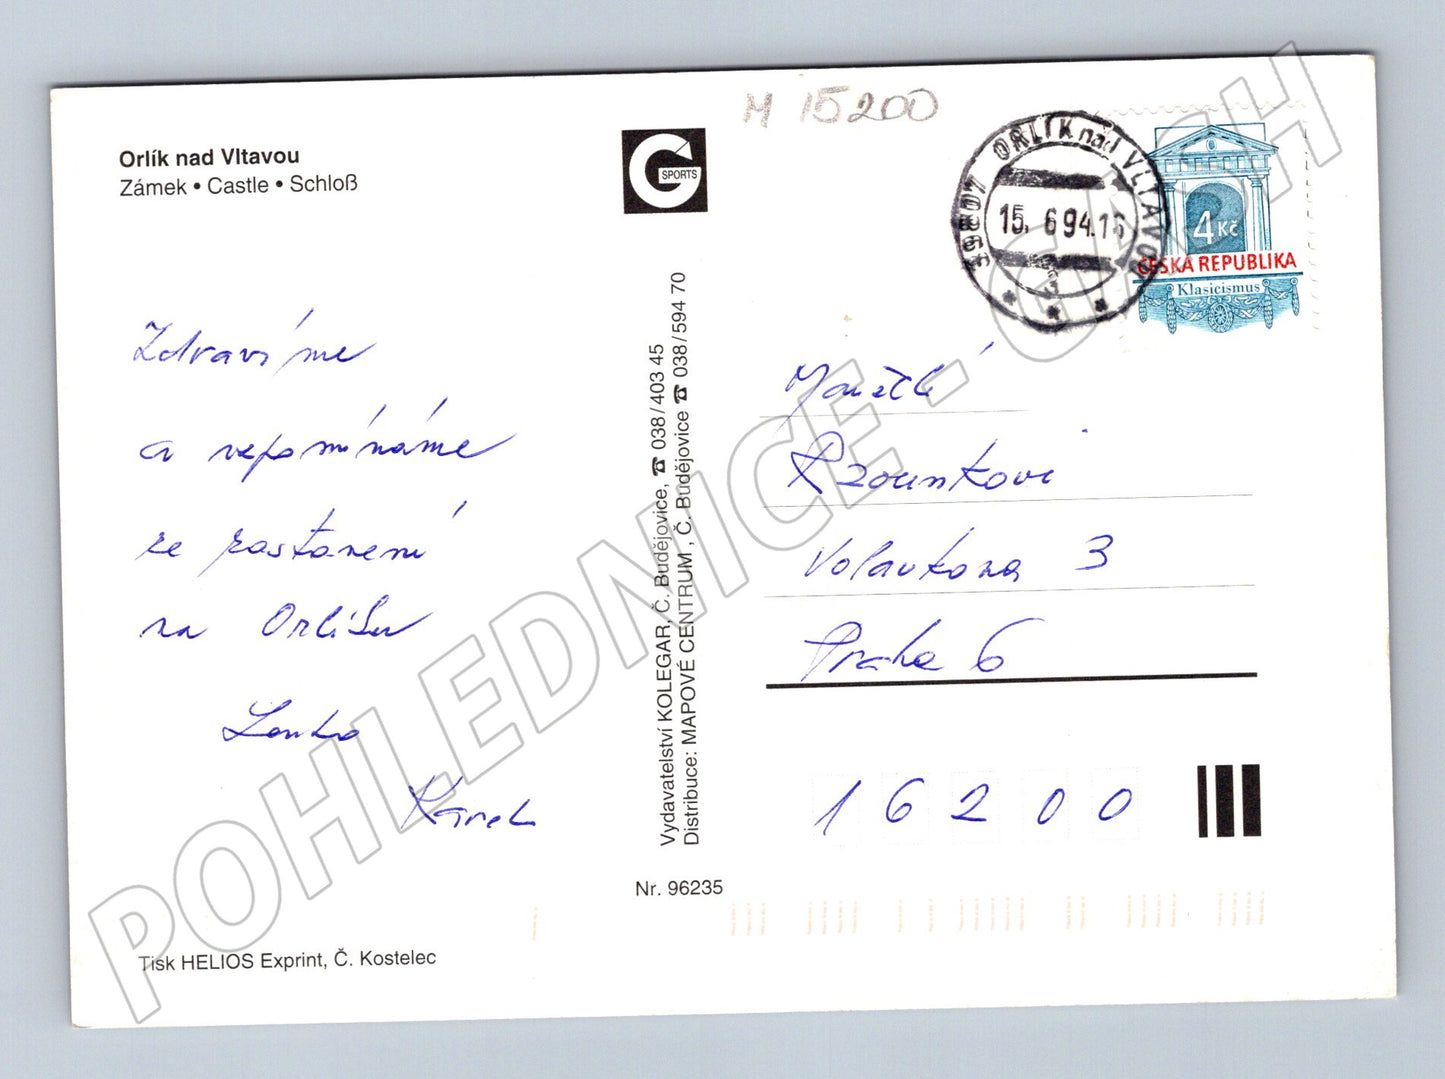 M 15200
Orlík nad Vltavou
Zámek • Castle • Schloß
G SPORTS
39807 ORLÍK nad VLTAVOU
15. 6 94.16
3
4 Kč
ČESKÁ REPUBLIKA
Klasicismus
Zdravíme
a vzpomínáme
ze zastavení
na Orlíku
Lenka
Karel
Vydavatelství KOLEGAR, Č. Budějovice, ☎ 038/403 45
Distribuce: MAPOVÉ CENTRUM, Č. Budějovice ☎ 038/594 70
Nr. 96235
Manželé
Volavkova 3
Praha 6
16200
Tisk HELIOS Exprint, Č. Kostelec
POHLEDNICE - CASH